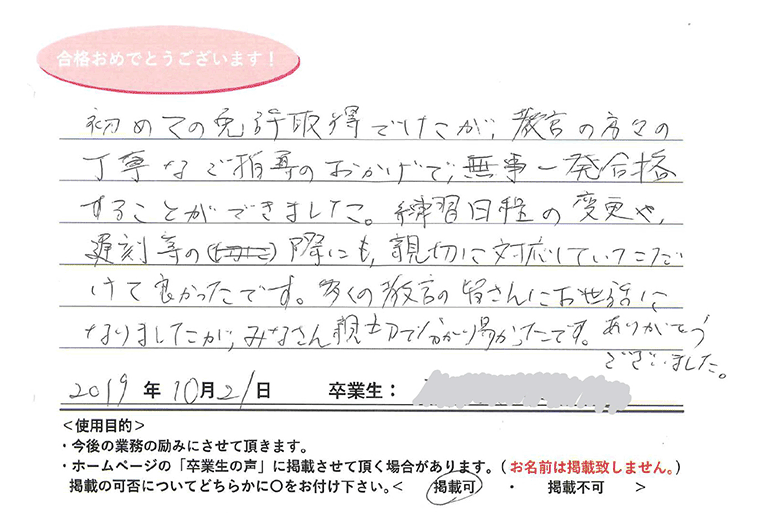 合格おめでとうございます！
初めての免許取得でしたが、教官の方々の
丁寧なご指導のおかげで、無事一発合格
することができました。練習日程の変更や、
遅刻等の際にも、親切に対応していただ
けて良かったです。多くの教官の皆さんにお世話に
なりましたが、みなさん親切で分かり易かったです。ありがとう
ございました。
2019年10月21日 卒業生：
＜使用目的＞
・今後の業務の励みにさせて頂きます。
・ホームページの「卒業生の声」に掲載させて頂く場合があります。（お名前は掲載致しません。）
掲載の可否についてどちらかに〇をお付け下さい。＜ 掲載可 ・ 掲載不可 ＞